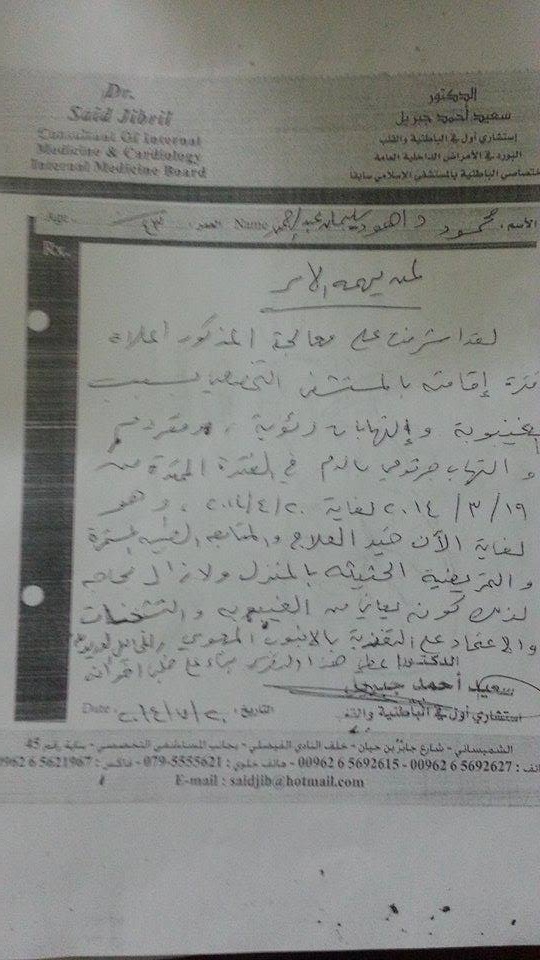 Dr.
Saed Jibril
Consultant Of Internal
Medicine & Cardiology
Internal Medicine Board
الدكتور
سعيد أحمد جبريل
إستشاري أول في الباطنية والقلب
البورد في الأمراض الداخلية العامة
اختصاصي الباطنية بالمستشفى الإسلامي سابقا
الاسم: محمود داهود سليمان عبد Name العمر: Age
Rx.
لمن يهمه الأمر
لقد اشرفت على معالجة المذكور اعلاه
فترة إقامته بالمستشفى التخصصي بسبب
غيبوبة و إلتهابات رئوية ،
و التهاب جرثومي بالدم في الفترة الممتدة من
١٩ / ٣ / ٢٠١٤ لغاية ٢٠١٤/٤/٢٠ ، وهو
لغاية الآن قيد العلاج والمتابعه الطبيه المستمرة
و التمريضية الحثيثه بالمنزل ولازال بحاجه
لذلك كونه يعاني من الغيبوبه والتشنجات
والاعتماد على التغذية بالانبوب المعوي
اعطي هذا التقرير بناء على طلب
الدكتور
سعيد أحمد جبريل
استشاري أول في الباطنية والقلب
Date التاريخ:
الشميساني - شارع جابر بن حيان - خلف النادي الفيصلي - بجانب المستشفى التخصصي - بناية رقم 45
هاتف : 5692627 6 00962 - 5692615 6 00962 - هاتف خلوي : 5555621-079 - فاكس : 5621967 6 00962
E-mail : saidjib@hotmail.com